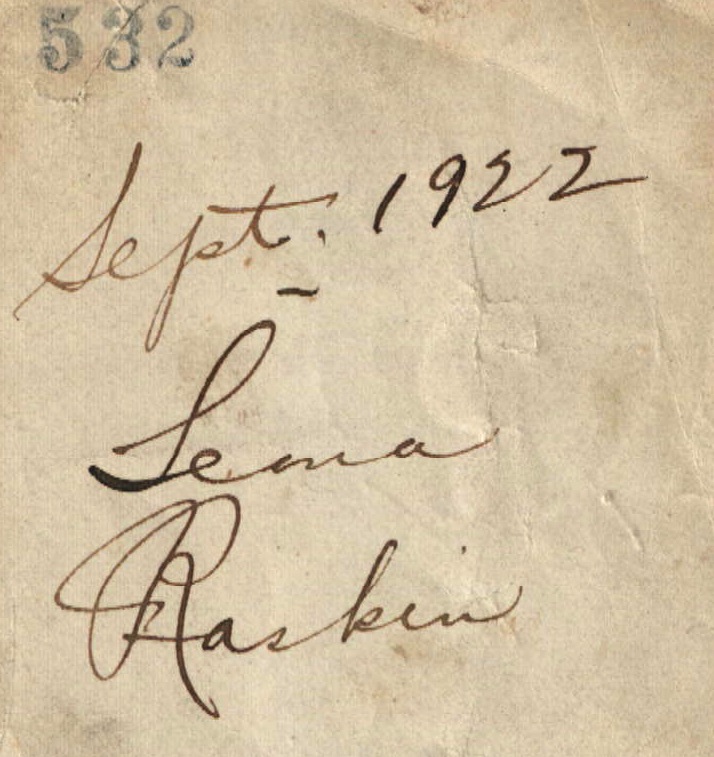 532
Sept. 1922
Leona
Raskin